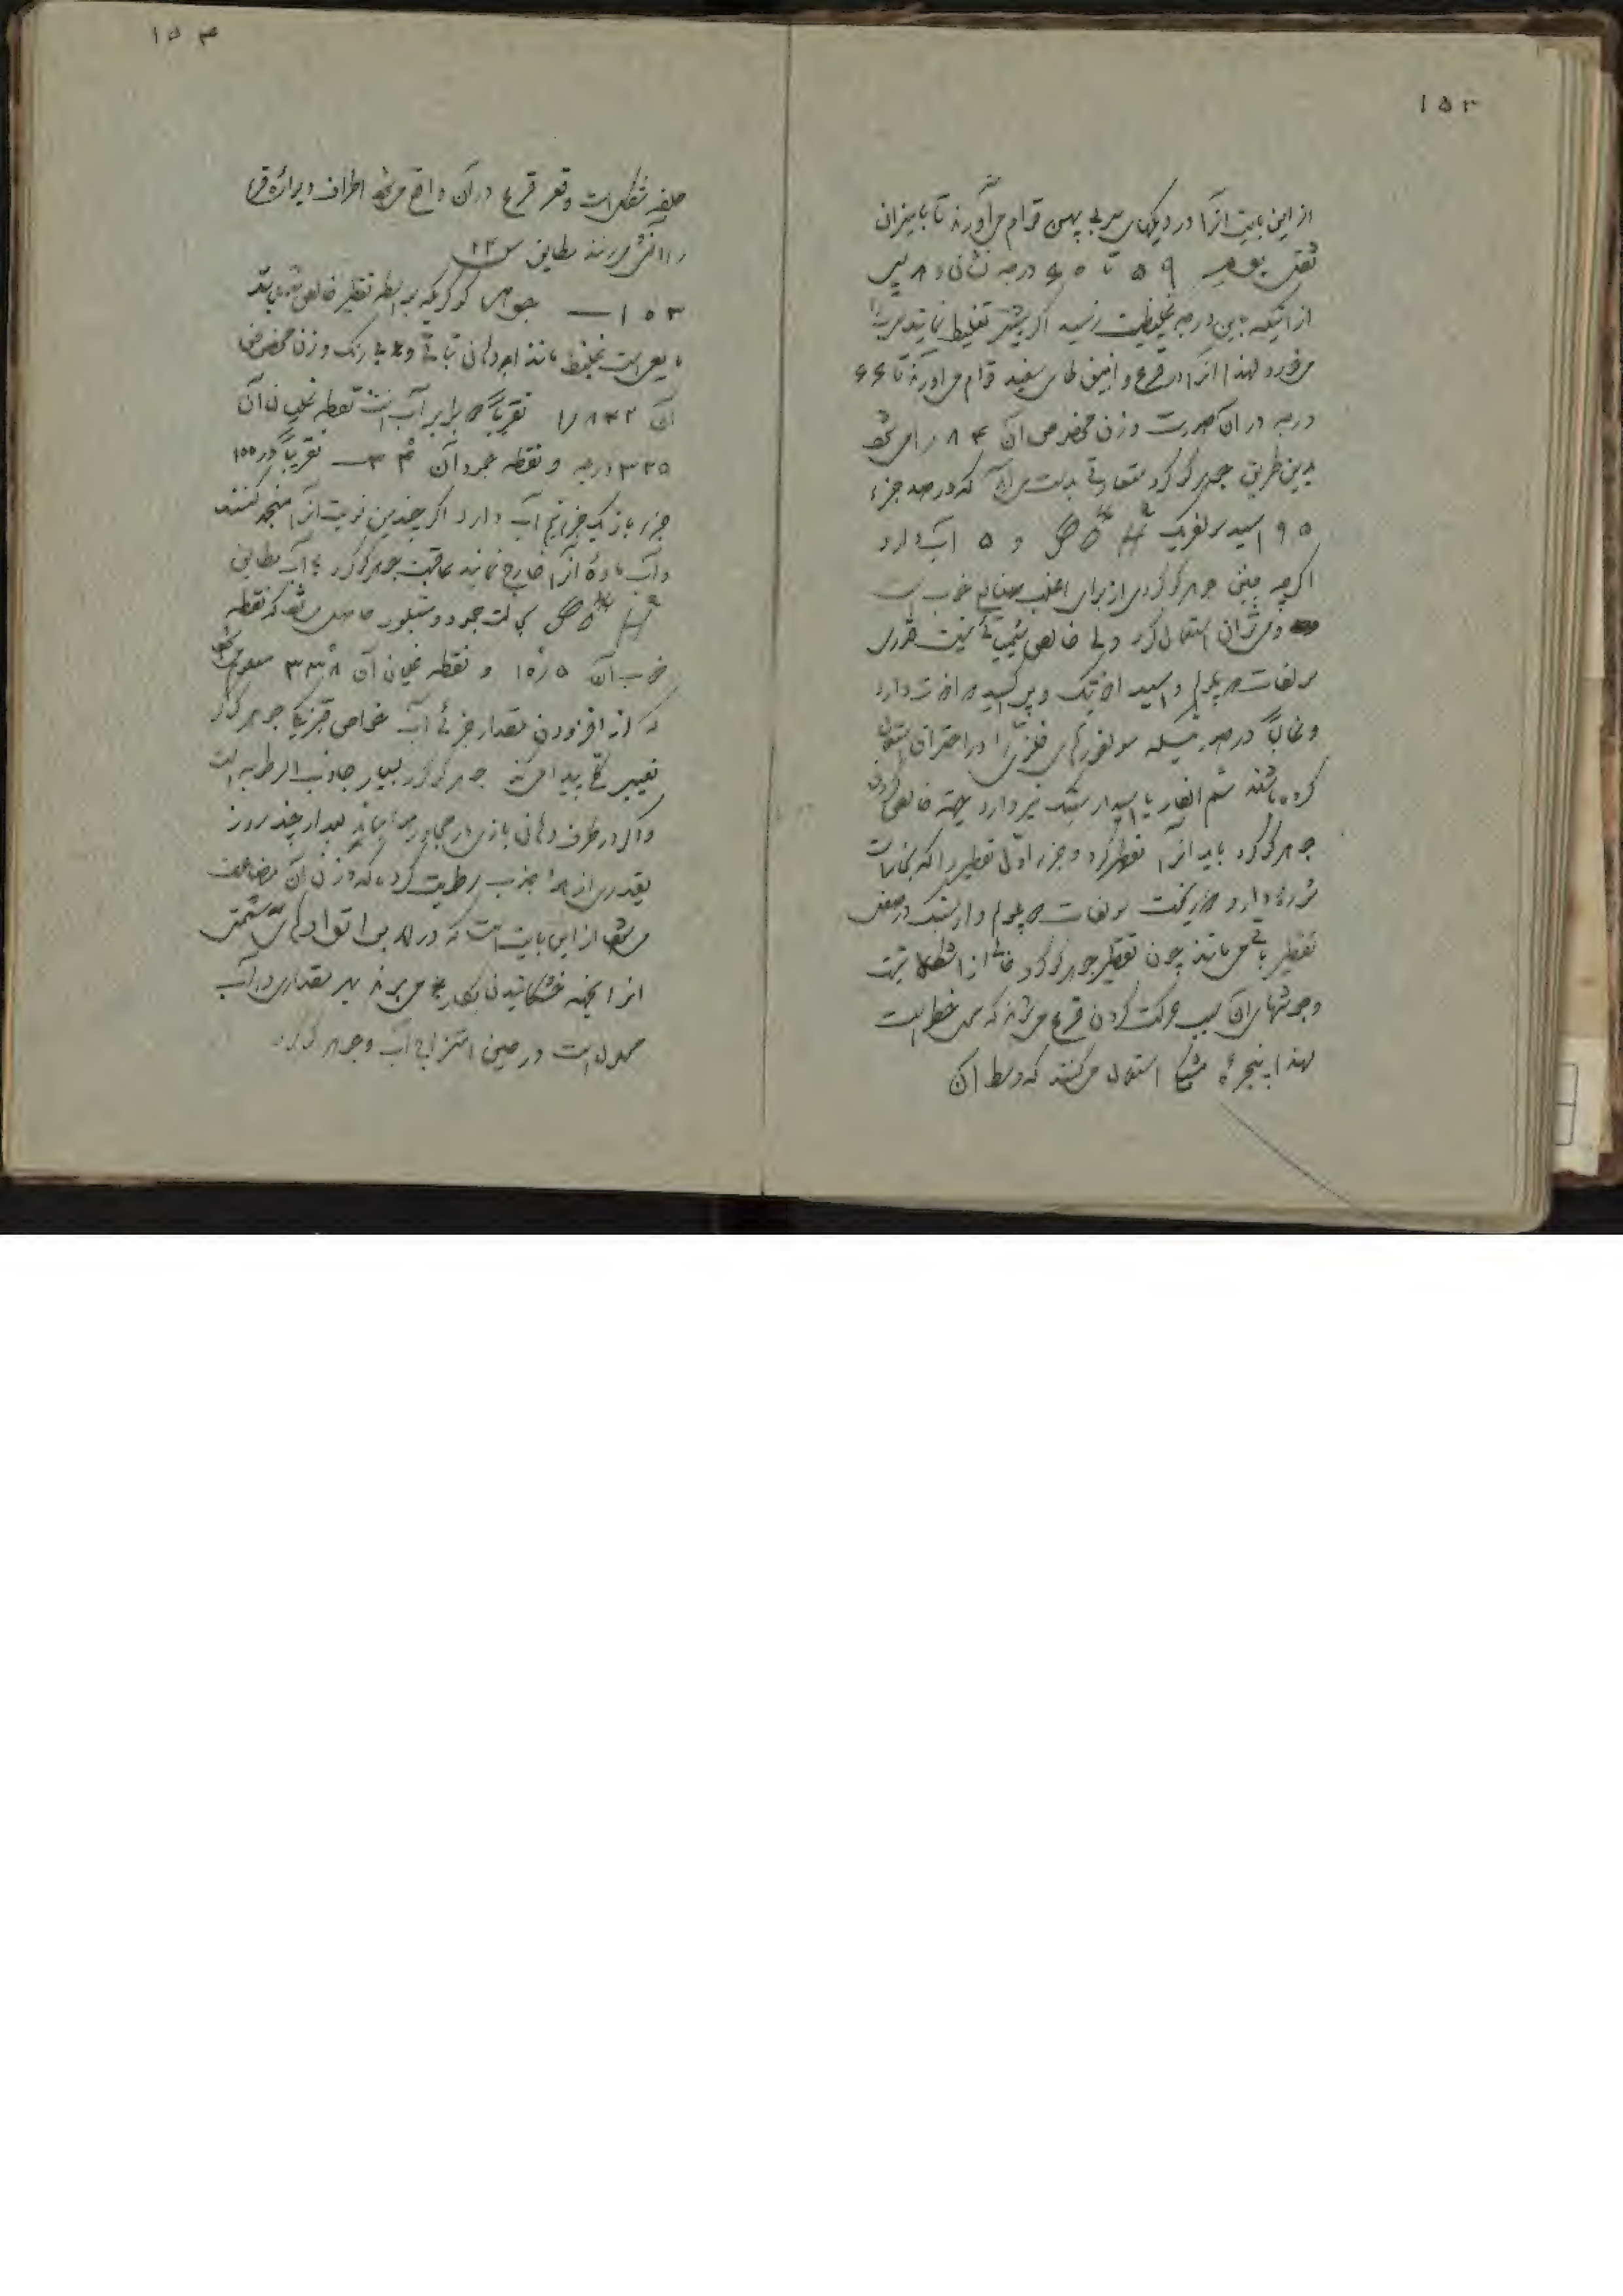 ۱۵۳
از این بابت آنرا در دیکهای سربی پهن قوام می‌آورند تا بمیزان
ثقل بومه ۵۹ تا ۶۰ درجه نشان دهد پس
از آنیکه باین درجه غلیظیت رسید اگر بیشتر تغلیظ نمایند سرب را
میخورد لهذا آنرا در قرع و انبیق های سفید قوام می‌آورند تا ۶۶
درجه در آن صورت وزن مخصوص آن ۱٫۸۴ میشود
بدین طریق جوهر گوگرد متعارفی بدست می‌آید که در صد جزء
۹۵ اسید سولفریک H²SO⁴ و ۵ آب دارد
اگر چه چنین جوهر گوگردی از برای اغلب صنایع خوب است
و میتوان استعمال کرد ولی خالص شیمیائی نیست قدری
سولفات دپلم و اسید ازتیک و پراکسید دازت دارد
و غالباً در صورتیکه سولفورهای فلزی را در احتراق استعمال
کرده باشند سم الفار یا اسید ارسنیک نیز دارد بجهة خالص کردن
جوهر گوگرد باید آنرا تقطیر کرد و جزء اول تقطیر را که بخارات
شوره دارد دور ریخت سولفات دپلم و ارسنیک در حین
تقطیر باقی می‌ماند چون تقطیر جوهر گوگرد خالی از اشکال نیست
و جوشهای آن سبب حرکت کردن قرع میشود که محل خطر است
لهذا پنجره مشبک استعمال میکنند که وسط آن
۱۵۴
حلقه شکل است و قعر قرع در آن واقع میشود اطراف و دیواره قرع
را آتش میزنند مطابق ش ۲۳
۱۵۳ — جوهر گوگردیکه بواسطه تقطیر خالص شده باشد
مایعی است غلیظ مانند ادهان نباتی و بی رنگ وزن مخصوص
آن ۱٫۸۴۲ تقریباً دو برابر آب است نقطه غلیان آن
۳۲۵ درجه و نقطه جمود آن ۳۴ — تقریباً در ۱۰۰
جزء باز یک جزء و نیم آب دارد اگر چندین نوبت آنرا منجمد کنند
و آب ماده آنرا خارج نمایند عاقبت جوهر گوگرد بی آب مطابق
H²SO⁴ بحالت جمود و متبلور حاصل میشود که نقطه
ذوب آن ۱۰٫۵ و نقطه غلیان آن ۳۳۸ معلوم میشود
که از افزودن مقدار جزئی آب خواص فیزیکی جوهر گوگرد
تغییر کلی پیدا میکند جوهر گوگرد بسیار جاذب الرطوبه است
و اگر در ظرف دهانی بازی در مجاور هوا بماند بعد از چند روز
بقدری از هوا جذب رطوبت کرده که وزن آن مضاعف
میشود از این بابت است که در لابراتوارهای شیمی
آنرا بجهة خشکانیدن بکار می‌برند بهر مقداری در آب
محلول است در حین امتزاج آب و جوهر گوگرد